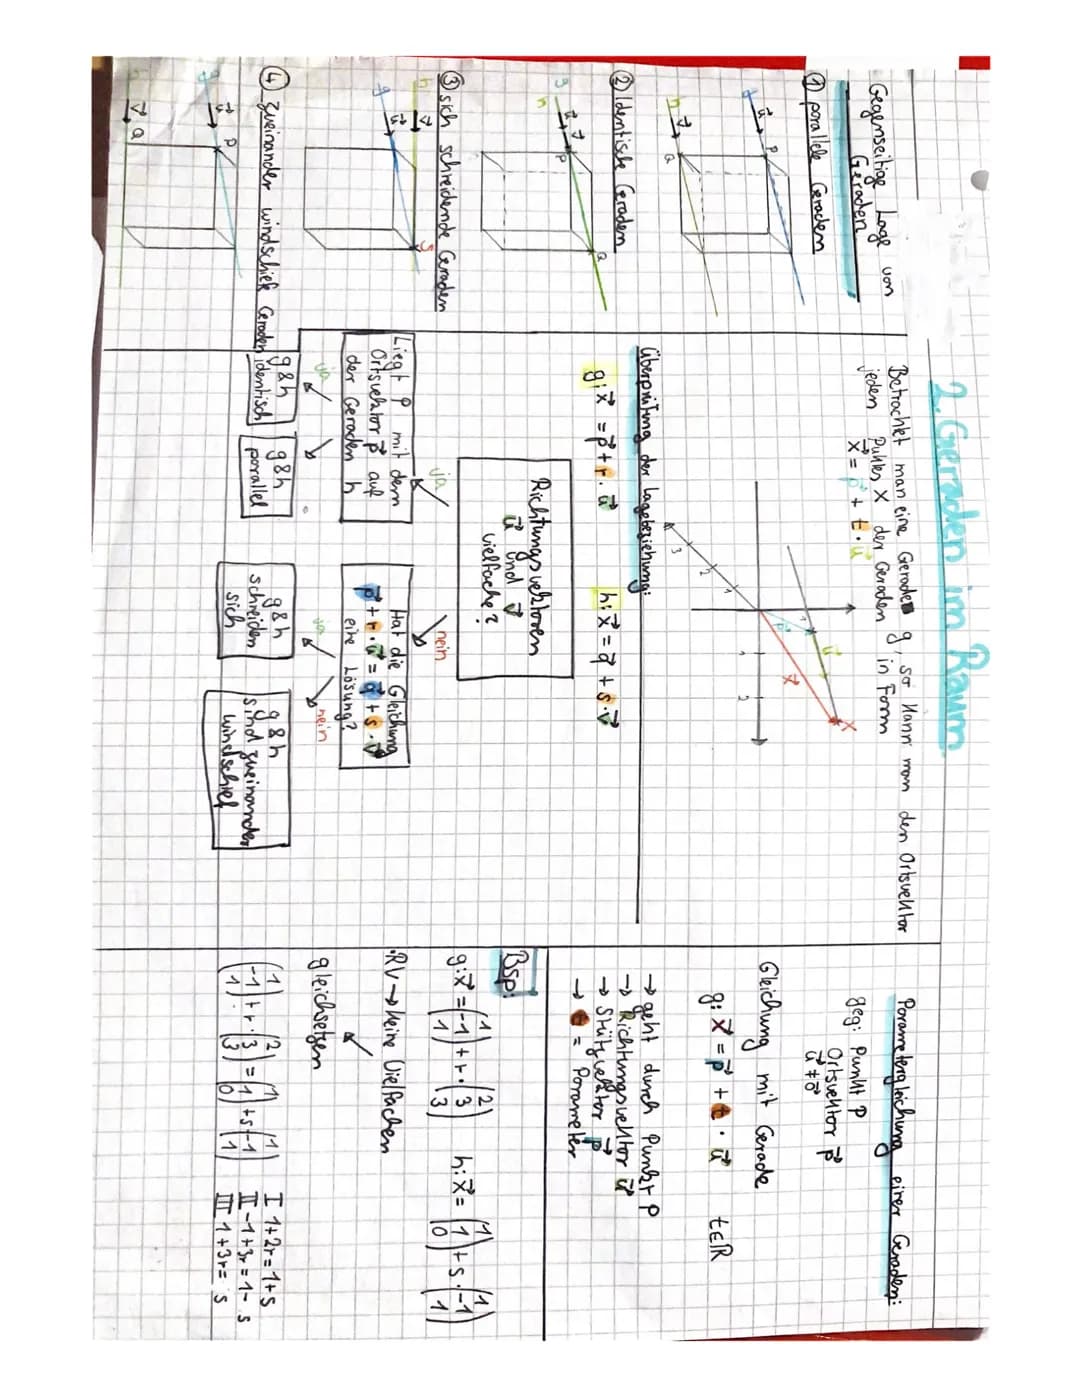 2. Geraden im Raum
Gegenseitige Lage von
Geraden
① parallele Geraden
g
u⃗
P
h
v⃗
Q
② Identische Geraden
g
h
u⃗
v⃗
P
Q
③ sich schneidende Geraden
h
v⃗
g
u⃗
S
④ zueinander windschiefe Geraden
g
u⃗
P
h
v⃗
Q
Betrachtet man eine Gerade g, so kann man den Ortsvektor
jeden Punktes X der Geraden in Form
x⃗ = p⃗ + t · u⃗
1
2
3
1
1
2
p⃗
u⃗
x⃗
X
Überprüfung der Lagebeziehung:
g: x⃗ = p⃗ + r · u⃗
h: x⃗ = q⃗ + s · v⃗
Richtungsvektoren
u⃗ und v⃗
vielfache?
ja
nein
Liegt P mit dem
Ortsvektor p⃗ auf
der Geraden h
Hat die Gleichung
p⃗ + r · u⃗ = q⃗ + s · v⃗
eine Lösung?
ja
ja
nein
g & h
identisch
g & h
parallel
g & h
schneiden
sich
g & h
sind zueinander
windschief
Parametergleichung einer Geraden:
geg: Punkt P
Ortsvektor p⃗
u⃗ ≠ 0⃗
Gleichung mit Gerade
g: x⃗ = p⃗ + t · u⃗ t∈ℝ
→ geht durch Punkt P
→ Richtungsvektor u⃗
→ Stützvektor p⃗
→ t = Parameter
Bsp:
g: x⃗ = (1 -1 1) + r · (2 3 3) h: x⃗ = (1 1 0) + s · (1 -1 1)
· RV → keine Vielfachen
gleichsetzen
(1 -1 1) + r · (2 3 3) = (1 1 0) + s (1 -1 1)
I 1+2r = 1+s
II -1+3r = 1- s
III 1+3r = s